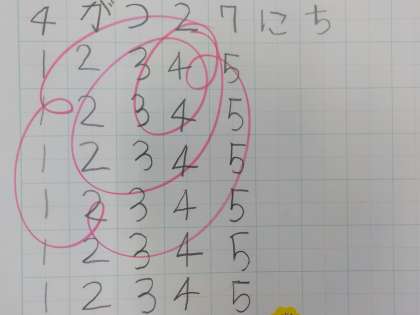 4がつ27にち
1 2 3 4 5
1 2 3 4 5
1 2 3 4 5
1 2 3 4 5
1 2 3 4 5
1 2 3 4 5